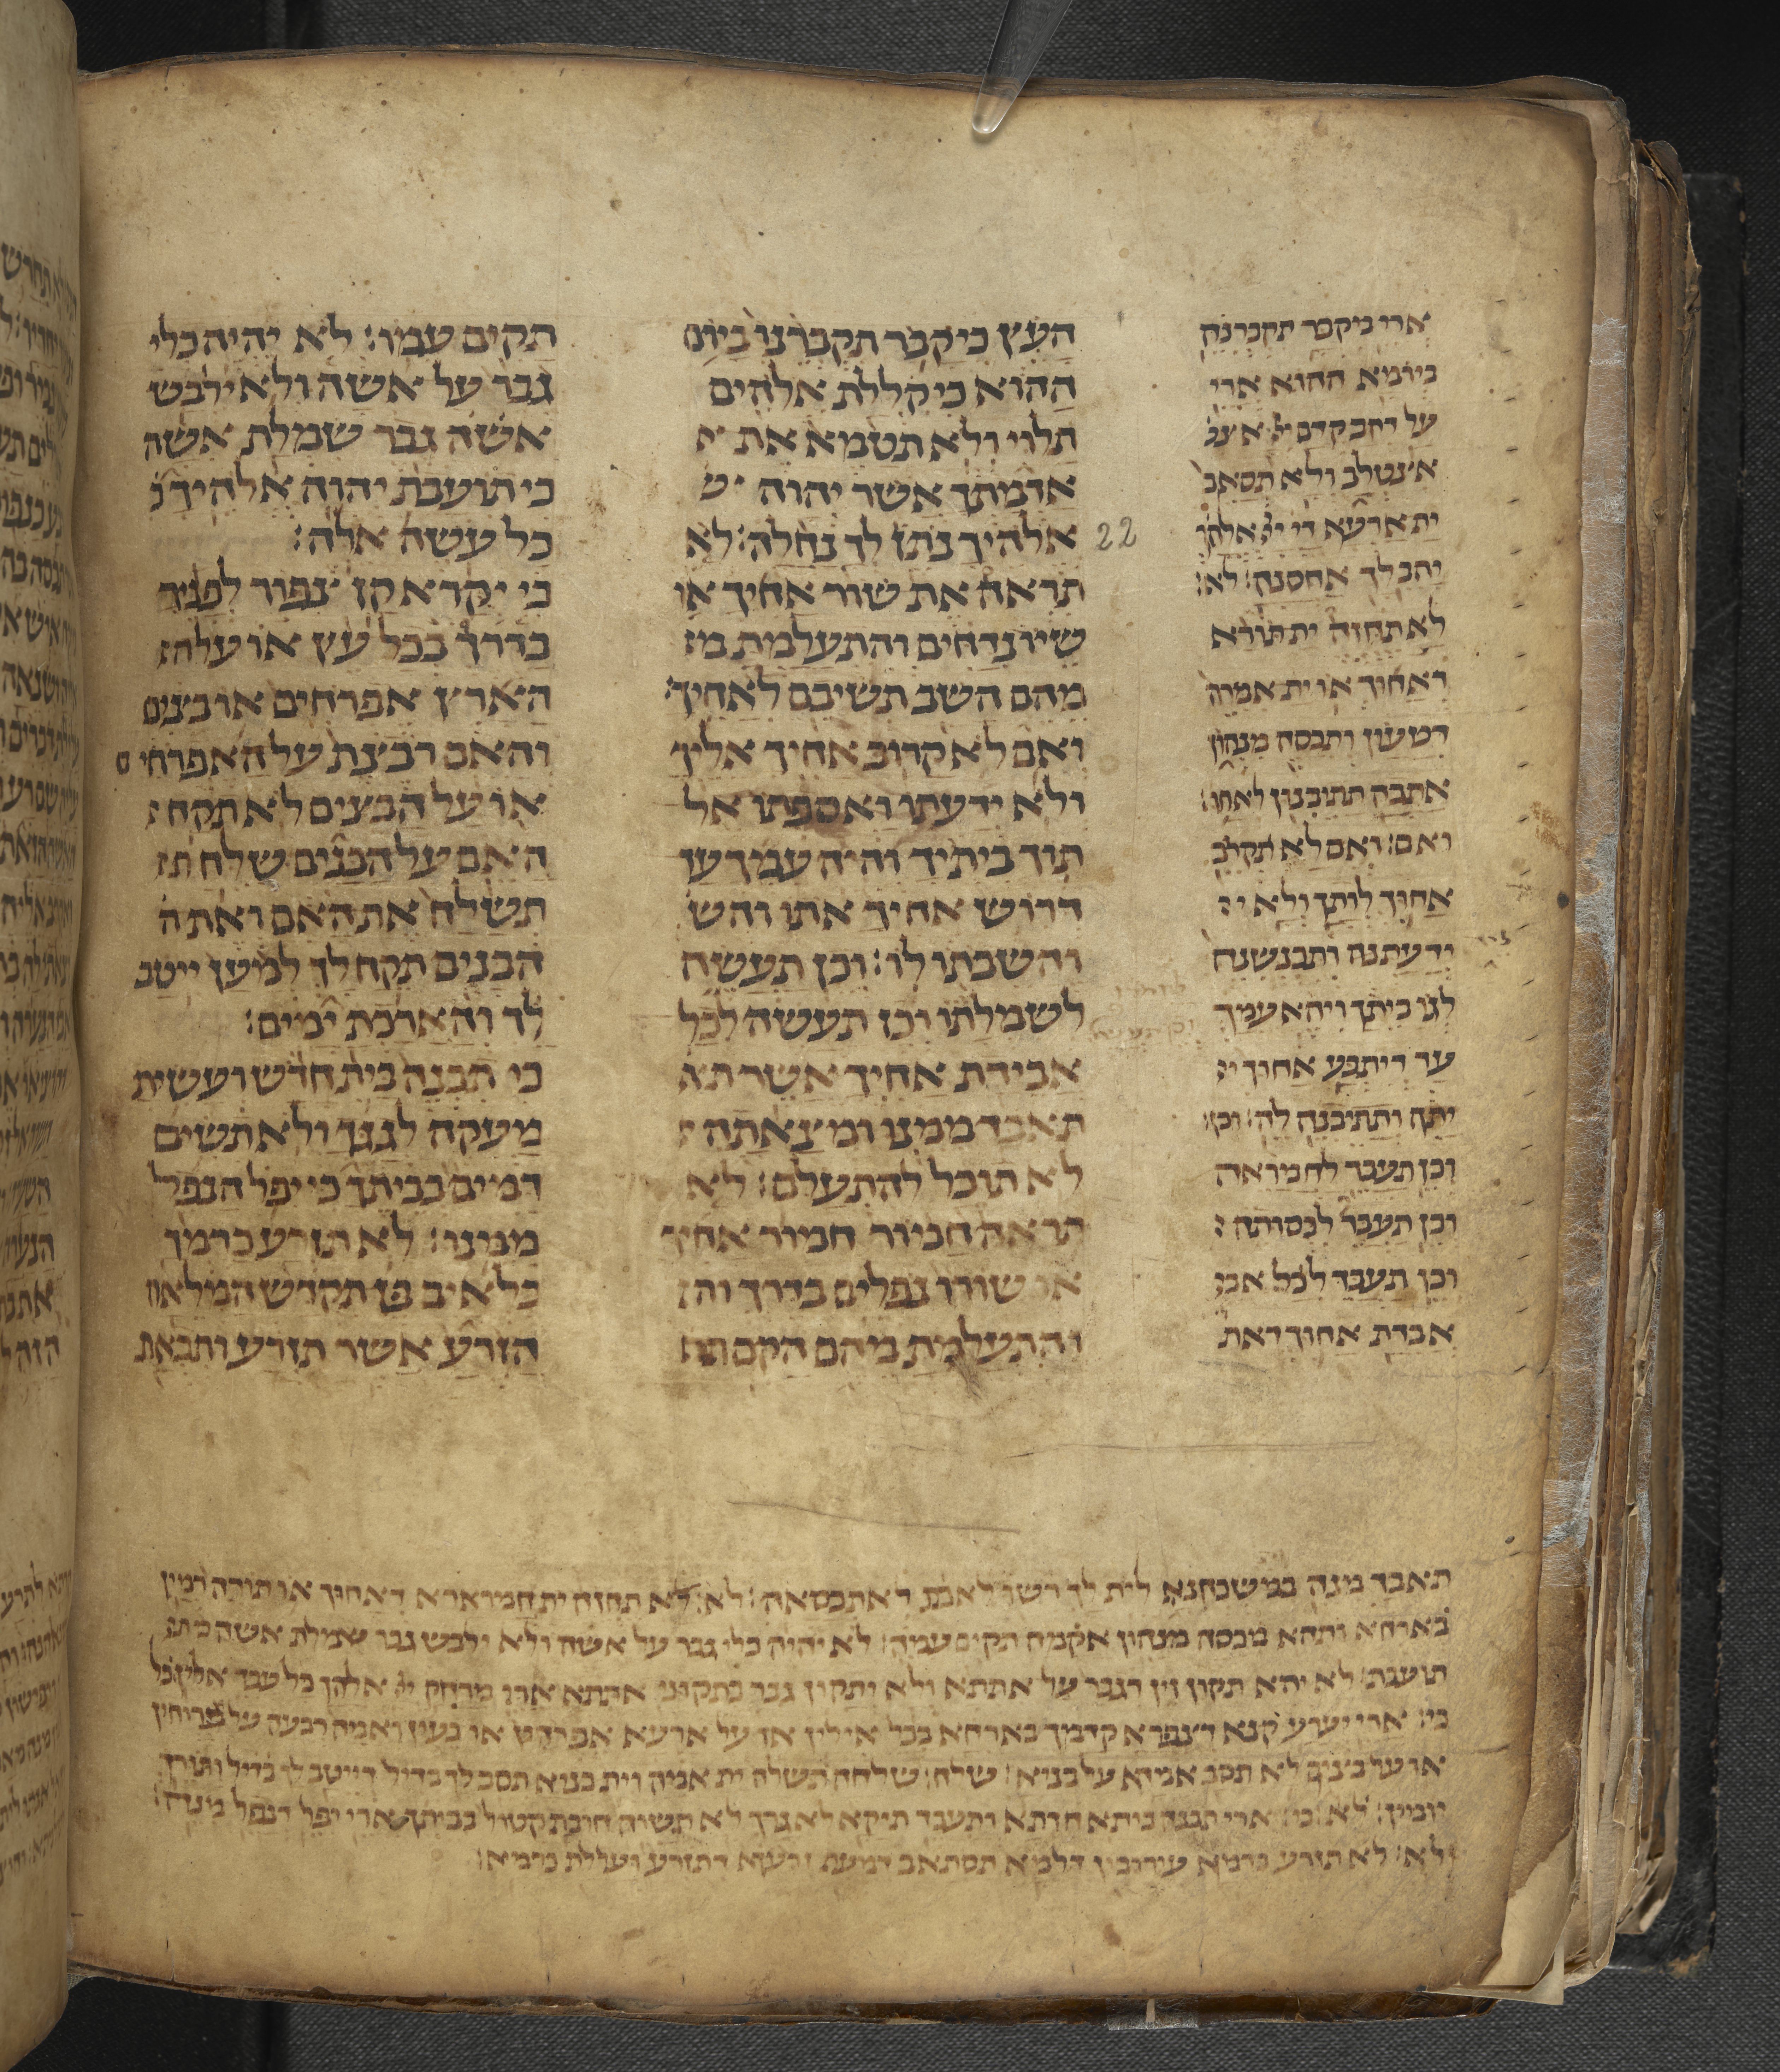 העץ כי קבר תקברנו ביום
ההוא כי קללת אלהים
תלוי ולא תטמא את א
אדמתך אשר יהוה
אלהיך נתן לך נחלה: לא
תראה את שור אחיך או
שיו נדחים והתעלמת מ
מהם השב תשיבם לאחיך:
ואם לא קרוב אחיך אליך
ולא ידעתו ואספתו אל
תוך ביתיך והיה עמך עד
דרוש אחיך אתו והש
והשבתו לו: וכן תעשה
לשמלתו וכן תעשה לכל
אבידת אחיך אשר ת
תאבד ממנו ומצאתה
לא תוכל להתעלם: לא
תראה חמור חמור אחיך
או שורו נפלים בדרך וה
והתעלמת מהם הקם ת
תקים עמו: לא יהיה כלי
גבר על אשה ולא ילבש
אשה גבר שמלת אשה
כי תועבת יהוה אלהיך כ
כל עשה אלה:
כי יקרא קן צפור לפניך
בדרך בכל עץ או עלה
הארץ אפרחים או ביצים
והאם רבצת על האפרחים
או על הבצים לא תקח
האם על הבנים שלח ת
תשלח את האם ואת ה
הבנים תקח לך למען ייטב
לך והארכת ימים:
כי תבנה בית חדש ועשית
מעקה לגגך ולא תשים
דמים בביתך כי יפל הנפל
ממנו: לא תזרע כרמך
כלאים פן תקדש המלאה
הזרע אשר תזרע ותבאת
22
ארי מיקבר תקברנה
ביומא ההוא ארי
על דחב קדם יי א
אצטלב ולא תסאב
ית ארעא די יי אלהך
יהב לך אחסנה: לא:
לא תחזה ית תורא
דאחוך או ית אמרה
דטעון ותכסה מנהון
אתבה תתיבנון לאחו
ואם: ואם לא קריב
אחוך לותך ולא י
ידעתנה ותכנשנה
לגו ביתך ויהא עמך
עד דיתבע אחוך י
יתה ותתיבנה לה: וכן
וכן תעבד לחמראה
וכן תעבד לכסותה:
וכן תעבד לכל אב
אבדת אחוך דאת
תאבד מנה ותשכחנא לית לך רשו לאת דאתכסאה: לא: לא תחזה ית חמרא דאחוך או תורה רמין
בארחא ותהא מכסה מנהון אקמה תקים עמה: לא יהיה כלי גבר על אשה ולא ילבש גבר שמלת אשה
תועבת: לא יהא תקון זין דגבר על אתתא ולא יתקון גבר בתקוני אתתא ארי מרחק יי אלהך כל עבד אלין
כי: ארי יערע קנא דצפרא קדמך בארחא בכל אילן או על ארעא אפרחין או בעין ואמה רבעה על
או על לא תסב אמא על בניא: שלח: שלחה תשלח ית אמה וית בניא תסב לך בדיל דייטב לך ותורך
יומין: כי: ארי תבני ביתא חדתא ותעבד תיקא לאגרך לא תשוה חובת קטול בביתך ארי יפל דנפל מנה:
לא: לא תזרע כרמא עירובין דלמא תסתאב דמעת זרעא דתזרע ועללת כרמיא: